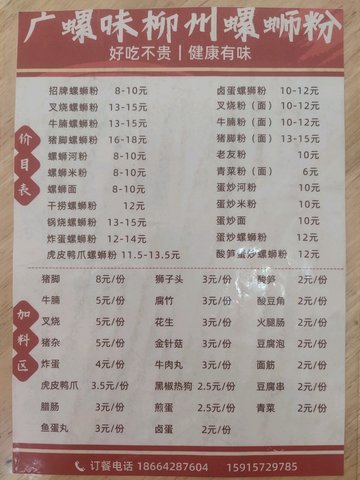 广螺味柳州螺蛳粉
好吃不贵｜健康有味
价目表
招牌螺蛳粉 8-10元 卤蛋螺狮粉 10-12元
叉烧螺蛳粉 13-15元 叉烧粉（面） 10-12元
牛腩螺蛳粉 13-15元 牛腩粉（面） 10-12元
猪脚螺蛳粉 16-18元 猪脚粉（面） 13-15元
螺蛳河粉 8-10元 老友粉 10元
螺蛳米粉 8-10元 青菜粉（面） 6元
螺蛳面 8-10元 蛋炒河粉 10元
干捞螺蛳粉 12元 蛋炒米粉 10元
锅烧螺蛳粉 13-15元 蛋炒面 10元
炸蛋螺蛳粉 12-14元 蛋炒螺蛳粉 12元
虎皮鸭爪螺蛳粉 11.5-13.5元 酸笋蛋炒螺蛳粉 12元
加料区
猪脚 8元/份 狮子头 3元/份 酸笋 2元/份
牛腩 5元/份 腐竹 3元/份 酸豆角 2元/份
叉烧 5元/份 花生 3元/份 火腿肠 2元/份
猪杂 5元/份 金针菇 3元/份 豆腐泡 2元/份
炸蛋 4元/份 牛肉丸 3元/份 面筋 2元/份
虎皮鸭爪 3.5元/份 黑椒热狗 2.5元/份 豆腐串 2元/份
腊肠 3元/份 煎蛋 2.5元/份 青菜 2元/份
鱼蛋丸 3元/份 卤蛋 2元/份
订餐电话 18664287604 15915729785